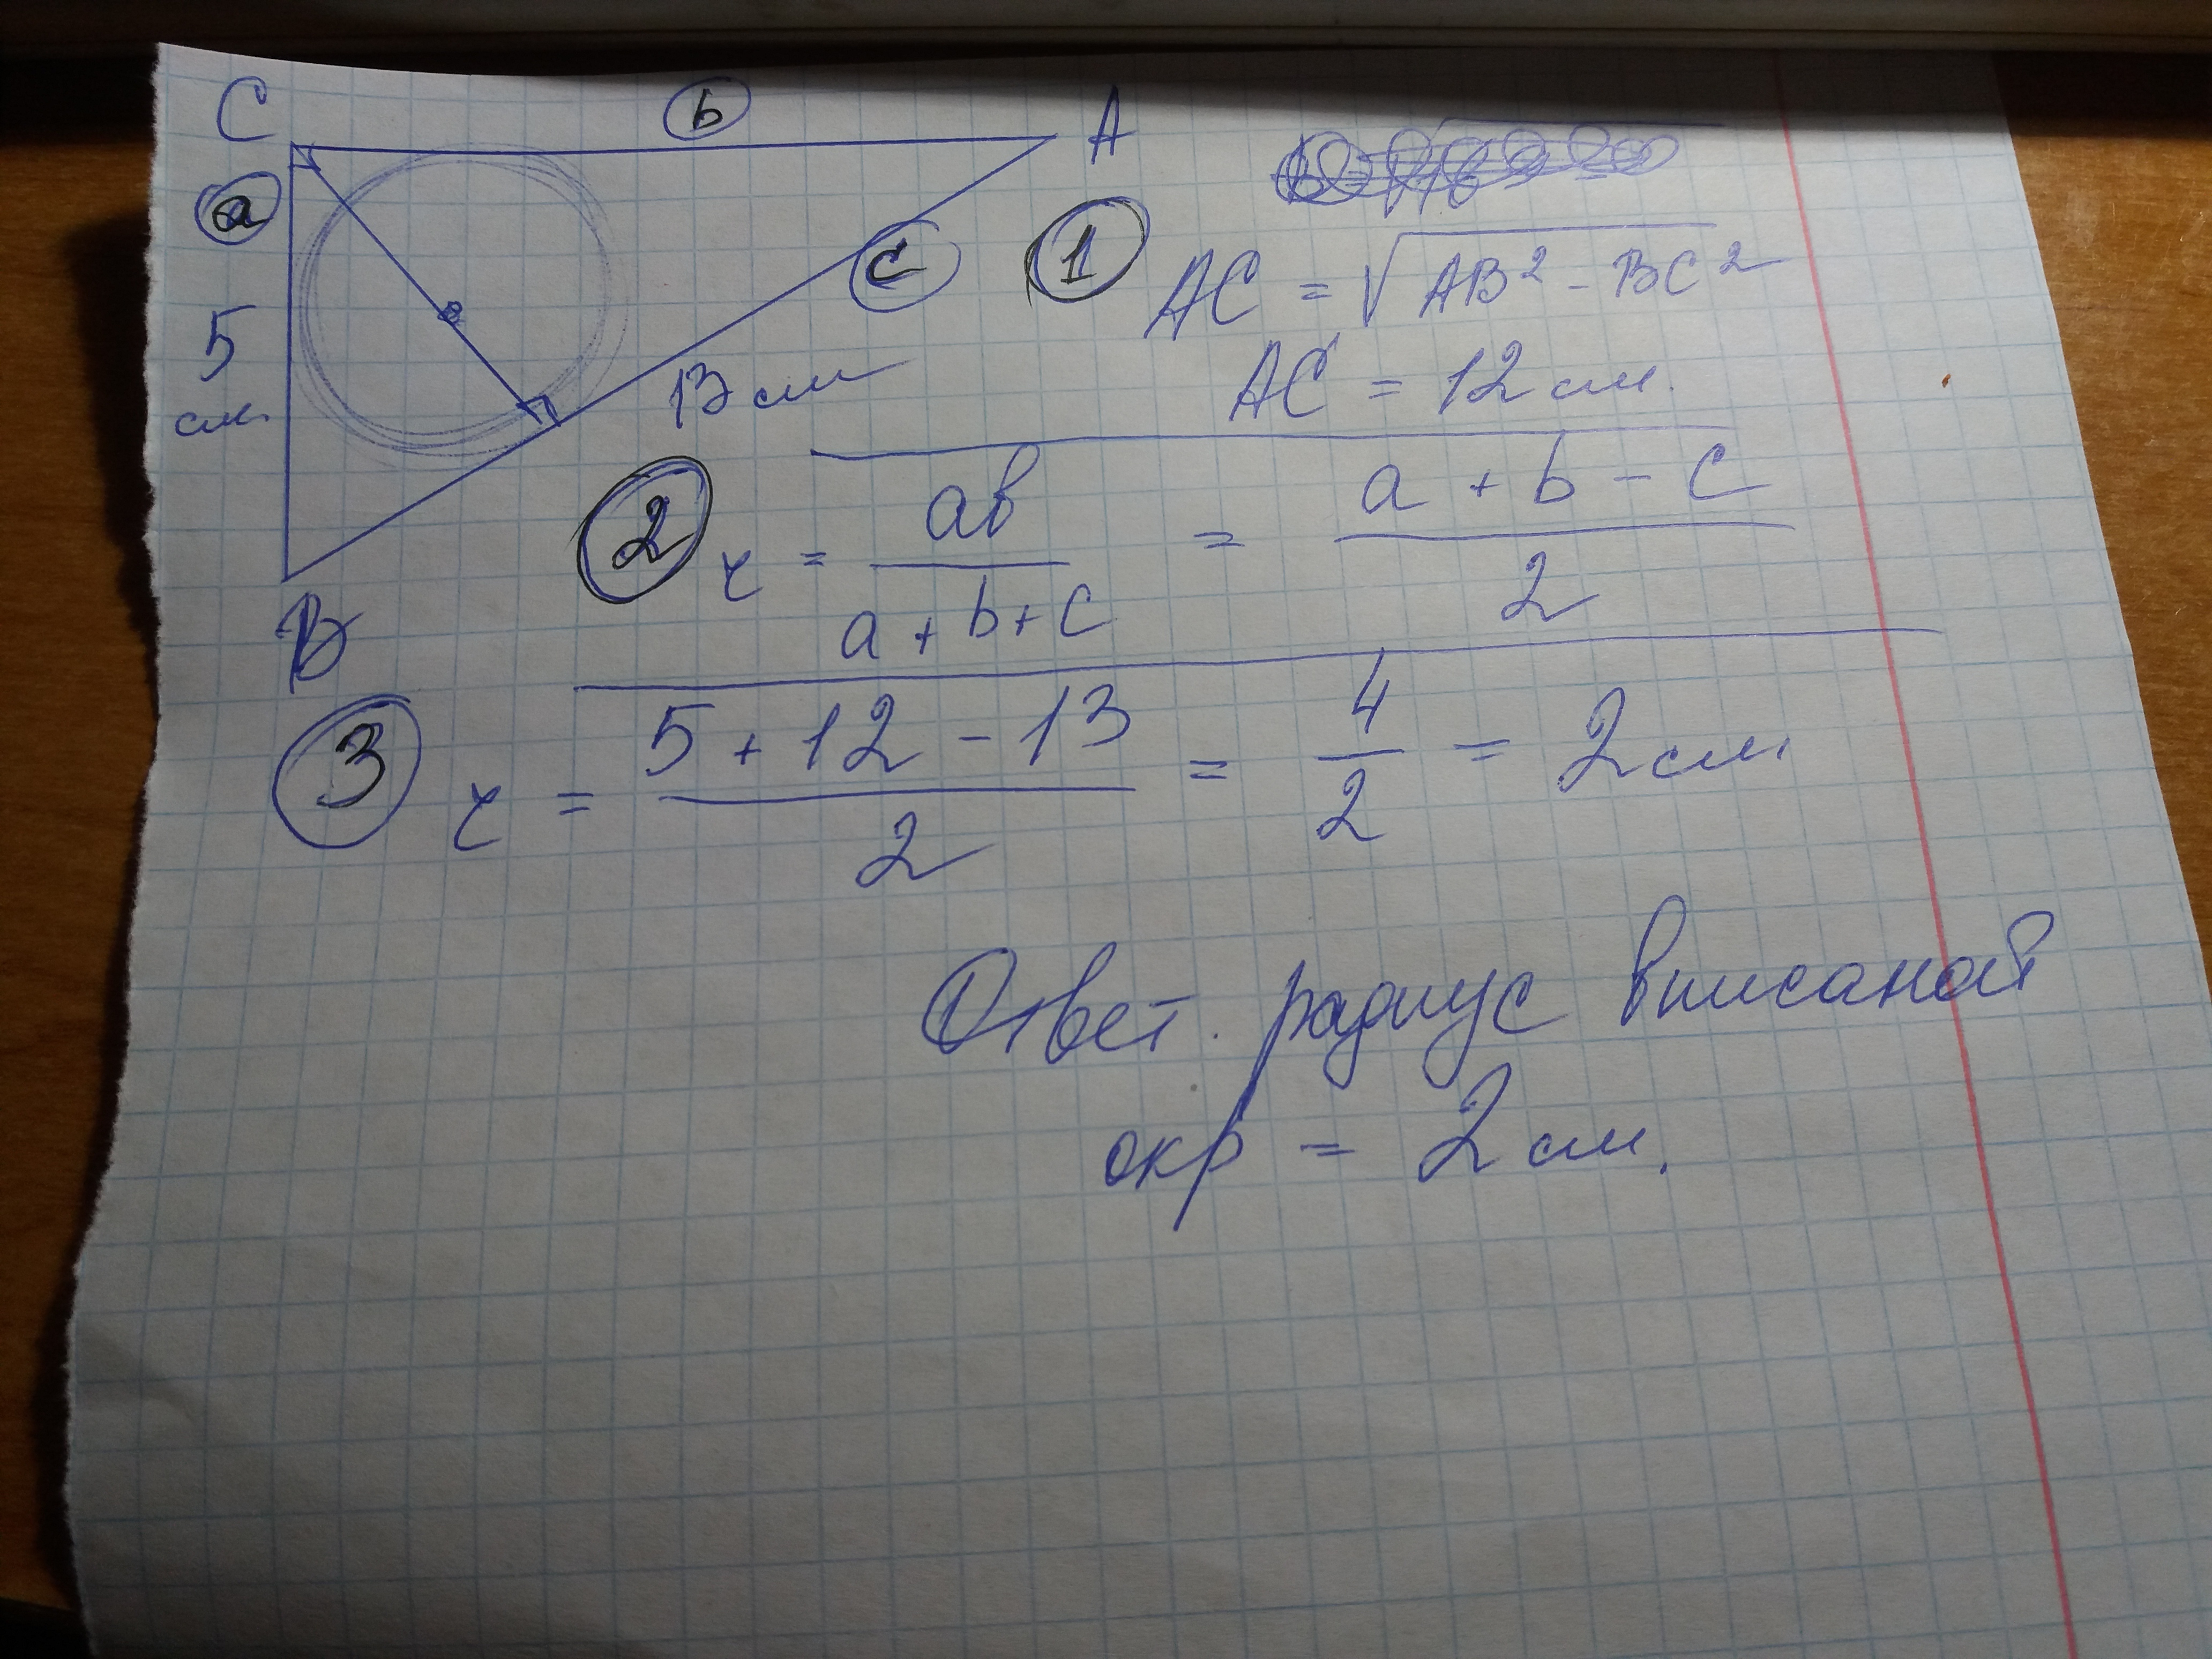 C b A
a
c
5
см.
13 см
B
1 AC = √AB² - BC²
AC = 12 см.
2 r = ab / a + b + c = a + b - c / 2
3 r = 5 + 12 - 13 / 2 = 4 / 2 = 2 см.
Ответ. радиус вписаной
окр = 2 см.